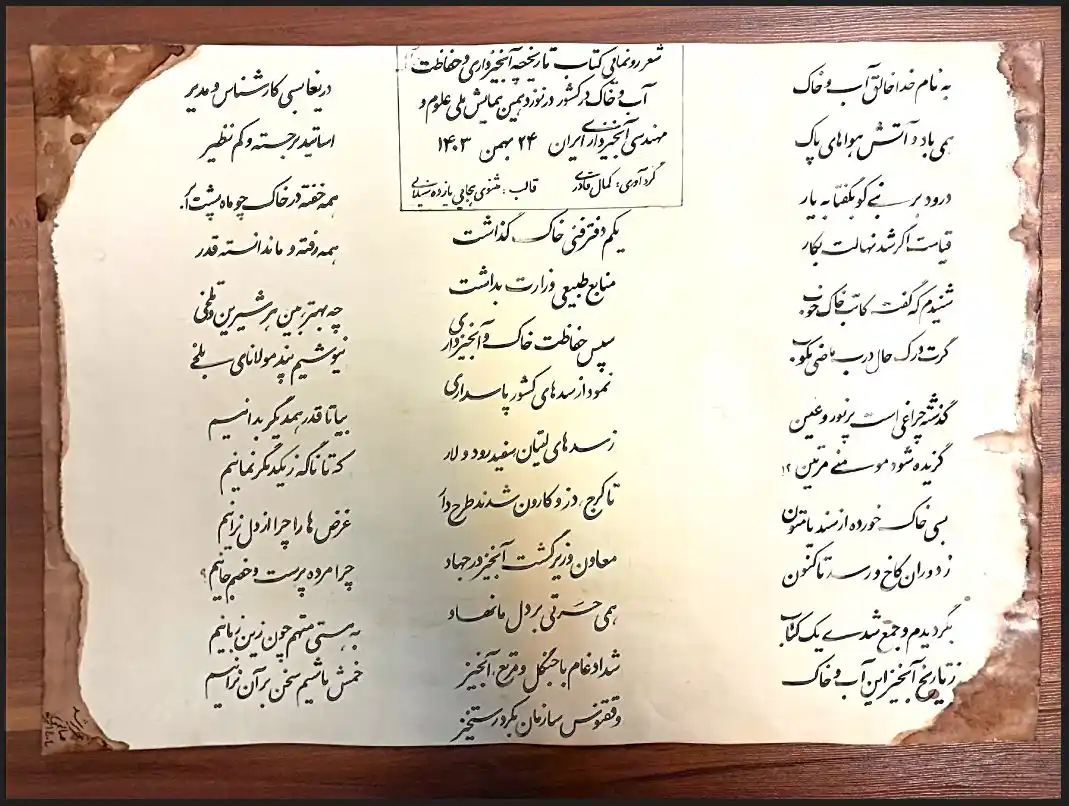 شعر رونمائی کتاب تاریخچه آبخیزداری و حفاظت
آب و خاک در کشور در نوزدهمین همایش ملی علوم و
مهندسی آبخیزداری ایران ۲۴ بهمن ۱۴۰۳
گردآوری: کمال قادری قالب: مثنوی هجایی یازده سیلابی
به نام خدا خالق آب و خاک
همی باد و آتش هواهای پاک
درود بر نبی کو بگفتا به یار
قیامت اگر شد نهالت بکار
شنیدم که گفت کتاب خاک خوب
گرت درک حال درب ماضی بکوب
گذشته چراغی است پر نور و عین
گزیده شود مومنی مرتین ۱۲
بسی خاک خورده از سند یا متون
ز دوران کاخ و رسد تا کنون
بگردیدم و جمع شدی یک کتاب
ز تاریخ آبخیز این آب و خاک
یکم دفتر فنی خاک گذاشت
منابع طبیعی وزارت بداشت
سپس حفاظت خاک و آبخیزداری
نمود از سدهای کشور پاسداری
ز سدهای لتیان سفیدرود و لار
تا کرج، دز و کارون شدند طرح دار
معاون وزیر گشت آبخیز در جهاد
همی حسرتی بر دل ما نهاد
شد ادغام با جنگل و مرتع، آبخیز
و ققنوس سازمان بکرد رستخیز
دریغا بسی کارشناس و مدیر
اساتید برجسته و کم نظیر
همه خفته در خاک چو ماه پشت ابر
همه رفته و ما ندانسته قدر
چه بهتر بین هر شیرین و تلخی
نیوشیم پند مولانای بلخی
بیا تا قدر همدیگر بدانیم
که تا ناگه ز یکدیگر نمانیم
غرض ها را چرا از دل نرانیم
چرا مرده پرست و خصم جانیم؟
به هستی متهم چون زین زبانیم
خمش باشیم سخن بر آن نرانیم